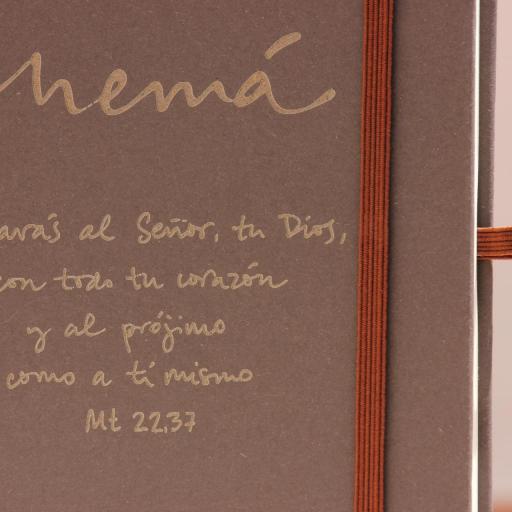 hemá
arás al Señor, tu Dios,
con todo tu corazón
y al prójimo
como a tí mismo
Mt 22,37